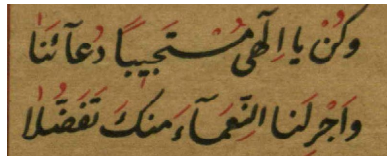 وَكُنْ يَا اِلٰهِى مُسْتَجِيْبًا دُعَآئَنَا
وَاَجْزِلْنَا النِّعَمَآءَ مِنْكَ تَفَضُّلَا